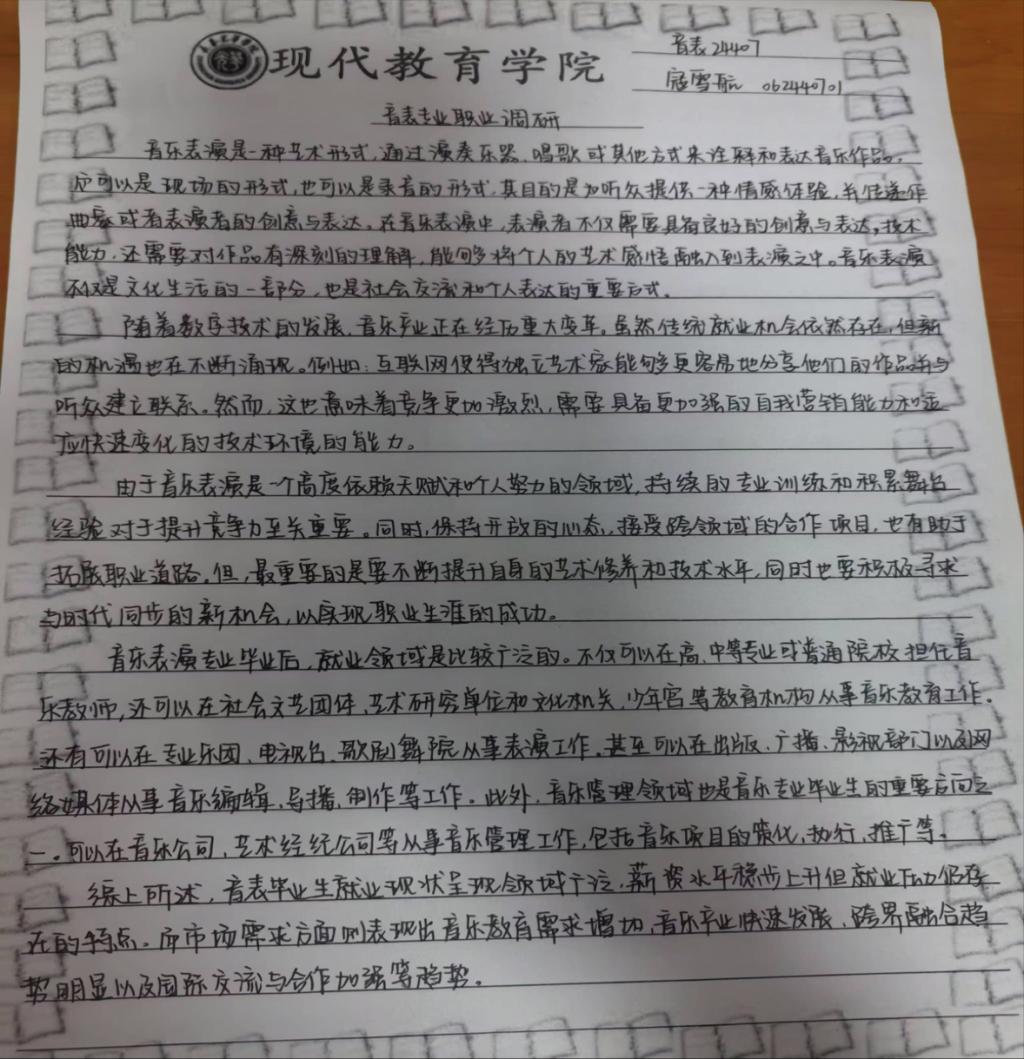 现代教育学院
音表24407
寇雪航 062440701
音表专业职业调研
音乐表演是一种艺术形式,通过演奏乐器、唱歌或其他方式来诠释和表达音乐作品,
应可以是现场的形式,也可以是录音的形式,其目的是为听众提供一种情感体验,并传递作
曲家或者表演者的创意与表达。在音乐表演中,表演者不仅需要具备良好的创意与表达,技术
能力,还需要对作品有深刻的理解,能够将个人的艺术感悟融入到表演之中。音乐表演
不仅是文化生活的一部分,也是社会交流和个人表达的重要方式。
随着数字技术的发展,音乐产业正在经历重大变革。虽然传统就业机会依然存在,但新
的机遇也在不断涌现。例如:互联网使得独立艺术家能够更容易地分享他们的作品并与
听众建立联系。然而,这也意味着竞争更加激烈,需要具备更加强的自我营销能力和适
应快速变化的技术环境的能力。
由于音乐表演是一个高度依赖天赋和个人努力的领域,持续的专业训练和积累舞台
经验对于提升竞争力至关重要。同时,保持开放的心态,接受跨领域的合作项目,也有助于
拓展职业道路,但,最重要的是要不断提升自身的艺术修养和技术水平,同时也要积极寻求
与时代同步的新机会,以实现职业生涯的成功。
音乐表演专业毕业后,就业领域是比较广泛的。不仅可以在高、中等专业或普通院校担任音
乐教师,还可以在社会文艺团体、艺术研究单位和文化机关、少年宫等教育机构从事音乐教育工作。
还有可以在专业乐团、电视台、歌剧舞院从事表演工作。甚至可以在出版、广播、影视部门以及网
络媒体从事音乐编辑、导播、制作等工作。此外,音乐管理领域也是音乐专业毕业生的重要方向之
一。可以在音乐公司、艺术经纪公司等从事音乐管理工作,包括音乐项目的策化、执行、推广等。
综上所述,音表毕业生就业现状呈现领域广泛、薪资水平稳步上升但就业压力仍存
在的特点。而市场需求方面则表现出音乐教育需求增加、音乐产业快速发展、跨界融合趋
势明显以及国际交流与合作加强等趋势。